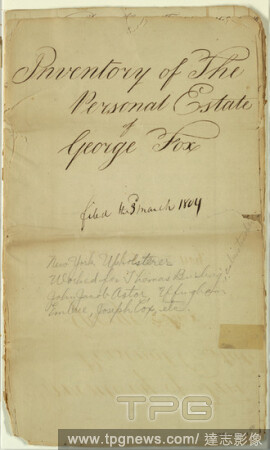 Inventory of The
Personal Estate
of
George Fox
filed the 3 March 1804
New York Upholsterer
Worked for Thomas
John Jacob Astor, Effingham
Embree, Joseph Cox, etc.
TPG
www.tpgnews.com / 達志影像